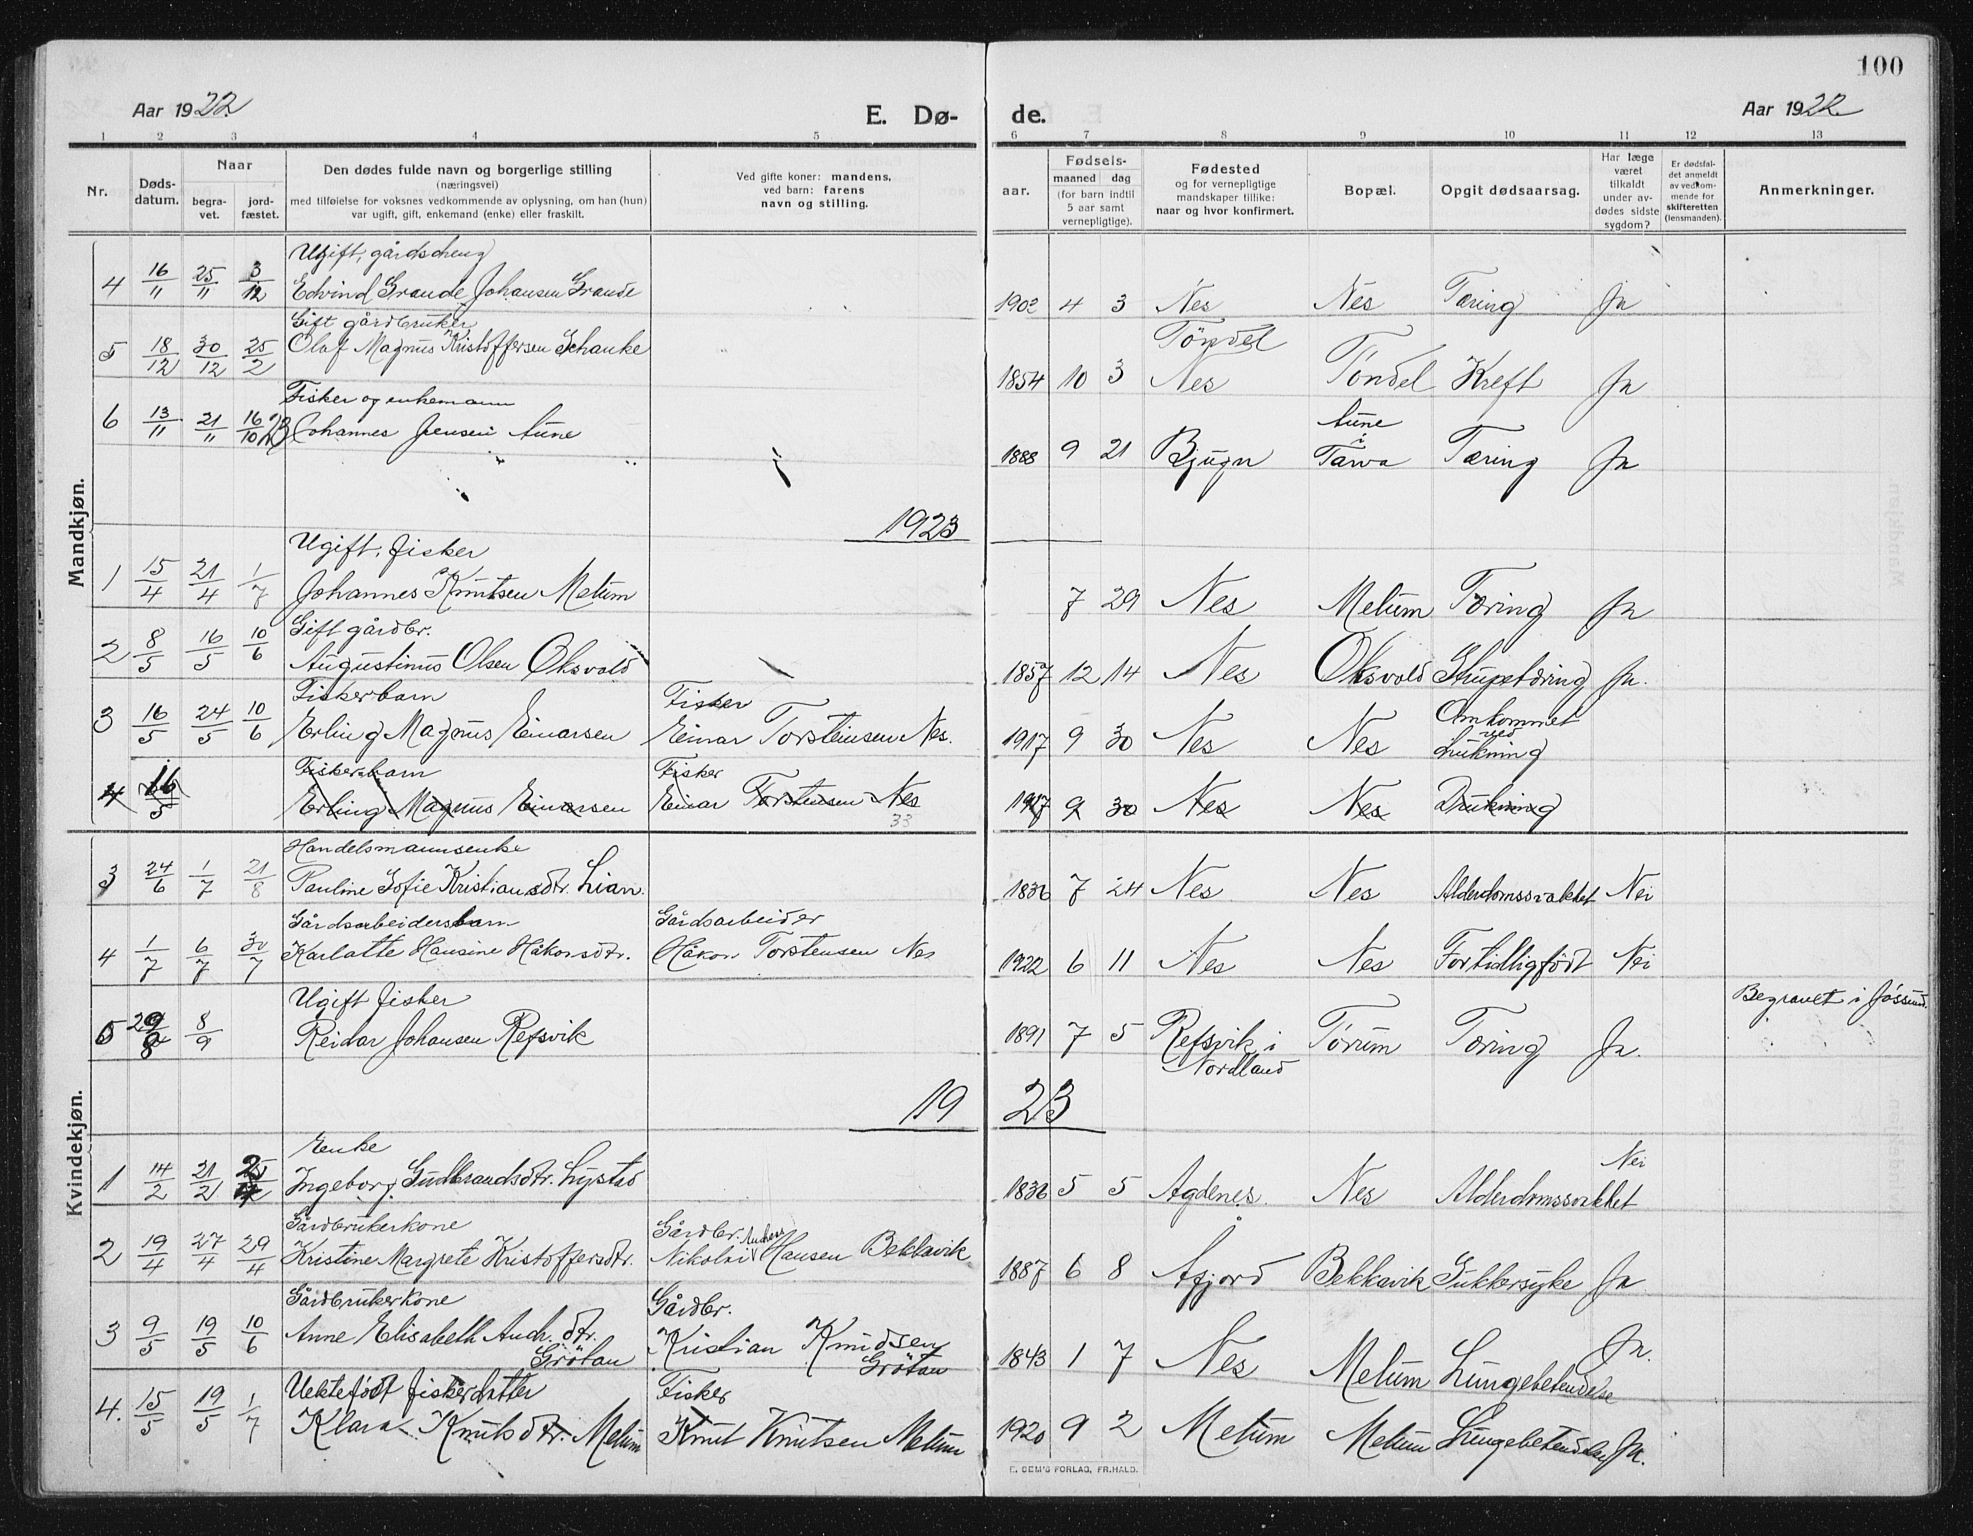 100
Aar 1922.
E. Dø-
de.
Aar 1922.
1 2 3 4 5 6 7 8 9 10 11 12 13
Nr.
Døds-
datum.
Naar
begra-
vet.
jord-
fæstet.
Den dødes fulde navn og borgerlige stilling
(næringsvei)
med tilføielse for voksnes vedkommende av oplysning, om han (hun)
var ugift, gift, enkemand (enke) eller fraskilt.
Ved gifte koner: mandens,
ved barn: farens
navn og stilling.
Fødsels-
aar.
maaned dag
(for barn indtil
5 aar samt
vernepligtige).
Fødested
og for vernepligtige
mandskaper tillike:
naar og hvor konfirmert.
Bopæl.
Opgit dødsaarsag.
Har læge
været
tilkaldt
under av-
dødes sidste
sygdom?
Er dødsfal-
det anmeldt
av vedkom-
mende for
skifteretten
(lensmanden).
Anmerkninger.
Mandkjøn.
Ugift, gårdsdreng
4 16/11 25/11 3/12 Edvind Grande Johansen Grande 1902 4 3 Nes Nes Tæring Ja
Gift gårdbruker Töndel
5 18/12 30/12 25/2 Olaf Magnus Kristoffersen Schanke 1854 10 3 Nes Töndel Kreft Ja
Fisker og enkemann Aune i
6 13/11 21/11 16/10 23 Johannes Jensen Aune 1888 9 21 Bjugn Tarva Tæring Ja
1923
Ugift, fisker
1 15/4 21/4 1/7 Johannes Knutsen Melum 7 29 Nes Melum Tæring Ja
Gift gårdbr.
2 8/5 16/5 10/6 Augustinus Olsen Oksvold 1857 12 14 Nes Oksvold Strupetæring Ja.
Fiskerbarn Fisker Omkommet ved
3 16/5 24/5 10/6 Erling Magnus Einarsen Einar Torstensen Nes. 1917 9 30 Nes Nes Drukning
Fiskerbarn Fisker
4 16/5 Erling Magnus Einarsen Einar Torstensen Nes 1917 9 30 Nes Nes Drukning
33
Kvindekjøn.
Handelsmannsenke
3 24/6 1/7 21/8 Pauline Sofie Kristiansdtr. Lian. 1836 7 24 Nes Nes Alderdomssvakhet Nei
Gårdsarbeidersbarn Gårdsarbeider
4 1/7 6/7 30/7 Karlotte Hansine Håkonsdtr. Håkon Torstensen Nes 1922 6 11 Nes Nes Fortidligfödt Nei
Ugift fisker Begravet i Jössund.
5 29/8 8/9 Reidar Johansen Refsvik 1891 7 5 Refsvik i Nordland Törum Tæring Ja.
19 23
Enke Nei
1 14/2 21/2 25/4 Ingeborg Gudbrandsdtr. Lystad 1836 5 5 Agdenes. Nes Alderdomssvakhet
Gårdbrukerkone Gårdbr. Anders
2 19/4 27/4 29/4 Kristine Margrete Kristoffersdtr. Nikolai Hansen Bekkavik 1887 6 8 Åfjord Bekkavik Sukkersyke Ja.
Gårdbrukerkone Gårdbr.
3 9/5 19/5 10/6 Anne Elisabeth Andr. dtr. Grötan Kristian Knudsen Grötan 1843 1 7 Nes Melum Lungebetendelse Ja.
Uektefödt fiskerdatter Fisker
4. 15/5 19/5 1/7 Klara Knutsdtr. Melum Knut Knutsen Melum 1920 9 2 Melum Melum Lungebetendelse Ja.
E. SEM'S FORLAG, FR.HALD.